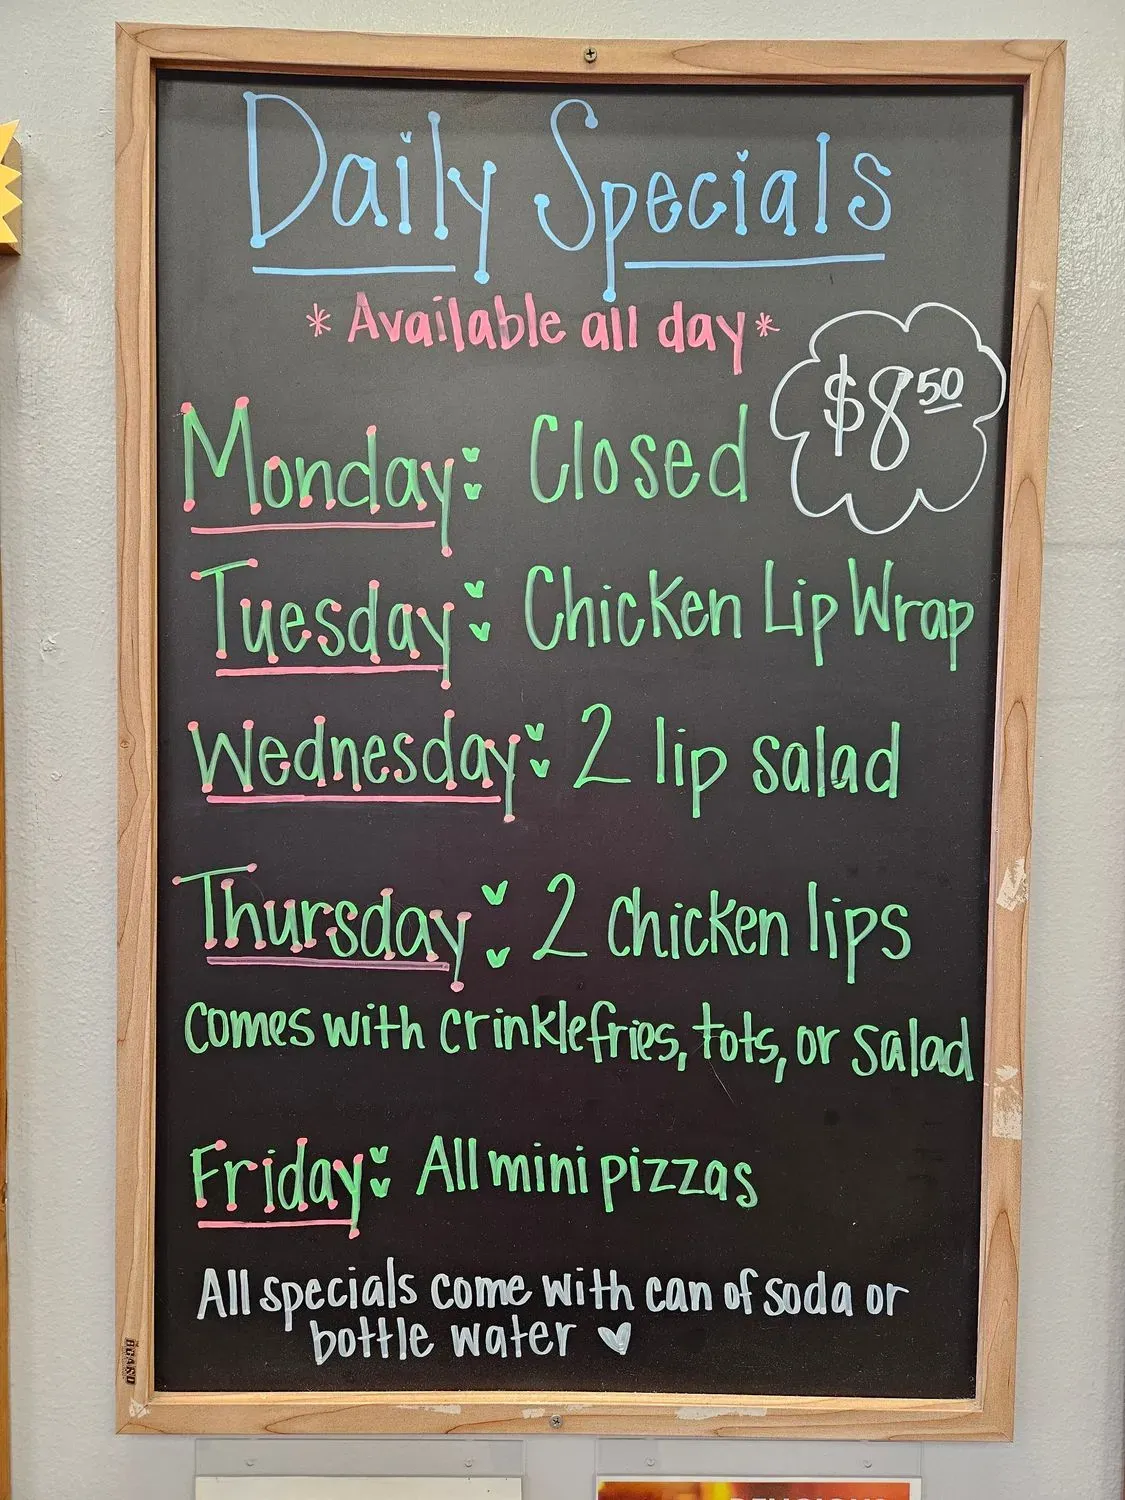 Daily Specials
* Available all day *
$8.50
Monday: Closed
Tuesday: Chicken Lip Wrap
Wednesday: 2 lip salad
Thursday: 2 chicken lips
comes with crinkle fries, tots, or salad
Friday: All mini pizzas
All specials come with can of soda or
bottle water